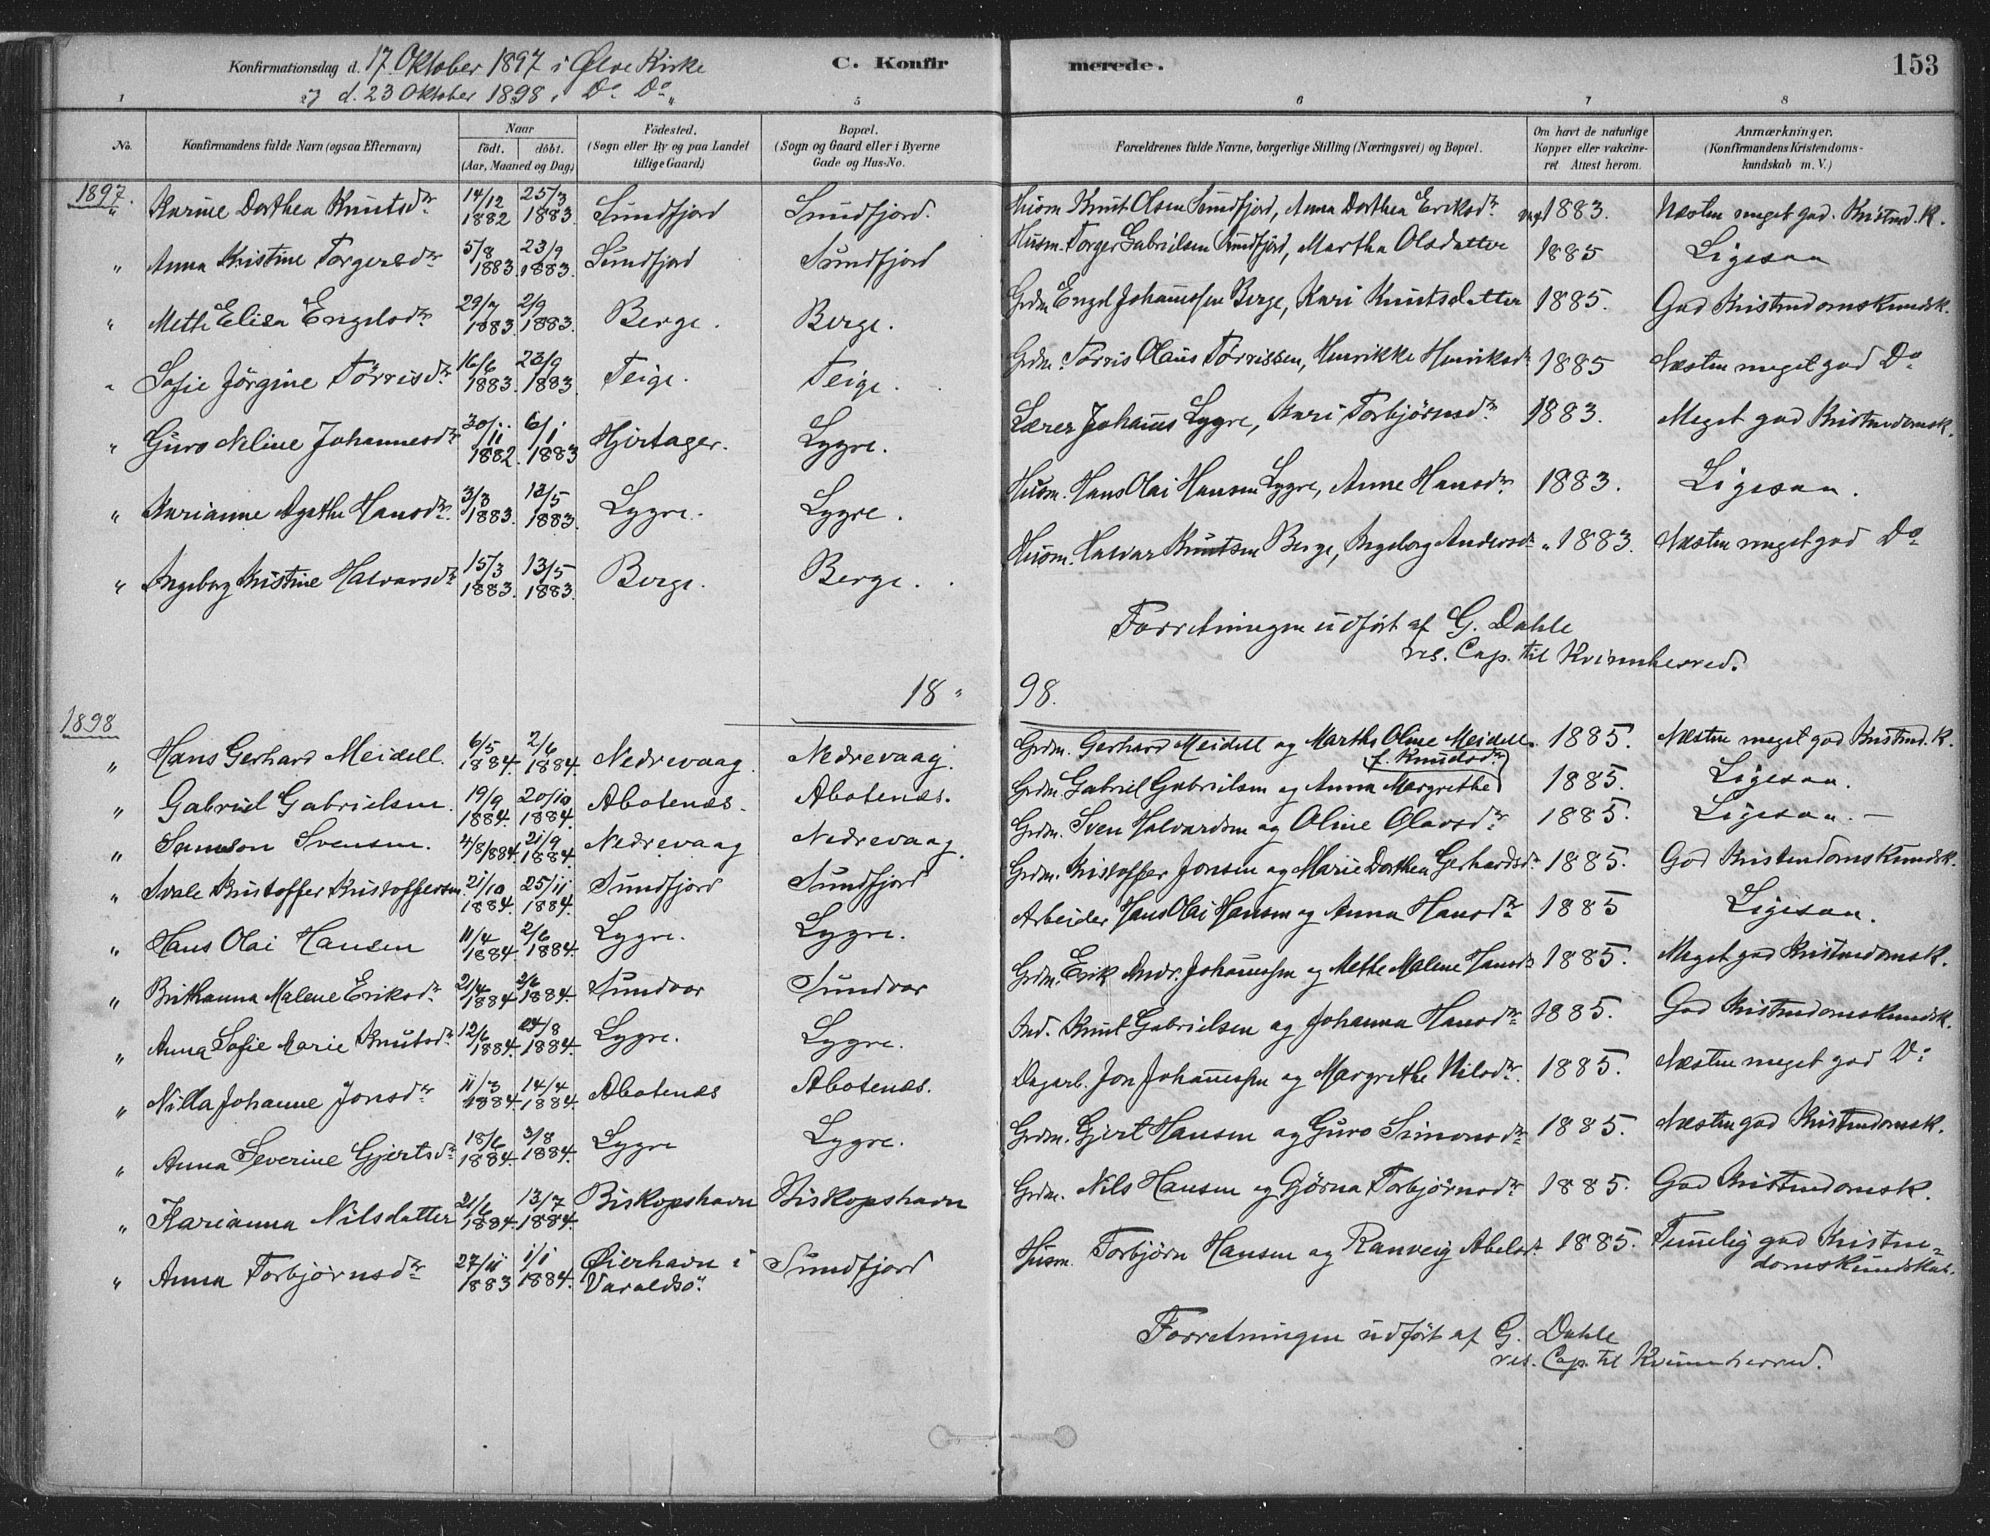 Konfirmationsdag d. 17 Oktober 1897 i Ølve Kirke
C. Konfirmerede.
153
d. 23 Oktober 1898 i Do Do
1 5 6 7 8
No. Konfirmandens fulde Navn (ogsaa Efternavn) Naar födt. döbt. (Aar, Maaned og Dag) Födested. (Sogn eller By og paa Landet tillige Gaard) Bopæl. (Sogn og Gaard eller i Byerne Gade og Hus-No. Forældrenes fulde Navne, borgerlige Stilling (Næringsvei) og Bopæl. Om havt de naturlige Kopper eller vaccineret Attest herom. Anmærkninger. (Konfirmandens Kristendomskundskab m. V.)
1897.
" Karine Dorthea Knutsdr 14/12 1882 25/3 1883 Sundfjord Sundfjord. Husm. Knut Olsen Sundfjord, Anna Dorthea Eriksdr 1883. Næsten meget god. Kristend. K.
" Anna Kristine Torgersdr 5/8 1883. 23/9 1883. Sundfjord Sundfjord Husm. Torger Gabrielsen Sundfjord, Martha Olsdatter 1885 Ligesaa
" Methe Elisa Engelsdr 29/7 1883 2/9 1883. Berge. Berge. Grdm. Engel Johannessen Berge, Kari Knutsdatter 1885. God Kristendomskundsk.
" Sofie Jörgine Törrisdr 16/6 1883. 23/9 1883 Teige. Teige. Grdm. Törris Olaus Törrissen, Henrikke Henriksdr 1885 Næsten meget god Do
" Guro Neline Johannesdr 30/11 1882. 6/1 1883 Hjertager. Lygre. Lærer Johannes Lygre, Kari Torbjørnsd. 1883. Meget god Kristendomsk.
" Karianne Agathe Hansdr. 3/3 1883. 13/5 1883. Lygre. Lygre. Husm. Hans Olai Hansen Lygre, Anne Hansdr. 1883. Ligesaa.
" Ingeborg Kristine Halvarsdr 15/3 1883. 13/5 1883. Berge. Berge. Husm. Halvar Knutsen Berge, Ingeborg Andersdr " 1883. Næsten meget god Do
Forretningen udført af G. Dahle
res. Cap. til Kvinnherred.
18 " 98.
1898
" Hans Gerhard Meidell. 6/5 1884. 2/6 1884. Nedrevaag Nedrevaag. Grdm. Gerhard Meidell og Martha Oline Meidell. 1885. Næsten meget god Kristend. K.
" Gabriel Gabrielsen. 19/9 1884. 20/10 1884. Abotenæs. Abotenæs. Grdm. Gabriel Gabrielsen og Anna Margrethe f. Knudsdr 1885. Ligesaa.
" Samson Svensen. 4/8/884 21/9 1884 Nedrevaag Nedrevaag. Grdm. Sven Halvardsen og Oline Olavsdr 1885. Ligesaa. —
" Svale Kristoffer Kristoffersen 21/10 1884. 25/11 1884. Sundfjord Sundfjord Grdm. Kristoffer Jonsen og Marie Dorthea Gerhardsdr 1885. God Kristendomskundsk.
" Hans Olai Hansen 11/4 1884 2/6 1884. Lygre. Lygre. Arbeider Hans Olai Hansen og Anna Hansdr 1885 Ligesaa.
" Brithanna Malene Eriksdr 21/4 1884 2/6 1884. Sundvor Sundvor Grdm. Erik Andr. Johannessen og Methe Malene Hansdr 1885. Meget god Kristendomsk.
" Anna Sofie Marie Knutsdr 12/6 1884. 24/8 1884. Lygre. Lygre. Ind. Knut Gabrielsen og Johanna Hansdr 1885. God Kristendomskundsk.
" Nilla Johanne Jonsdr 11/3 1884 14/4 1884. Abotenæs Abotenæs. Dagarb. Jon Johannessen og Margrethe Nilsdr. 1885. Næsten meget god Do
" Anna Severine Gjertsdr 18/6 1884. 3/8 1884. Lygre Lygre. Grdm. Gjert Hansen og Guro Simonsdr 1885. Næsten god Kristendomsk.
" Karianna Nilsdatter 21/6 1884. 13/7 1884. Biskopshavn Biskopshavn Grdm. Nils Hansen og Gjørna Torbjørnsdr 1885. God Kristendomsk.
" Anna Torbjørnsdr 27/11 1883 1/1 1884. Øierhavn i Varaldsö. Sundfjord Husm. Torbjørn Hansen og Ranveig Abelsdr 1885. Temelig god Kristendomskundskab.
Forretningen udført af G. Dahle
res. Cap. til Kvinnherred.